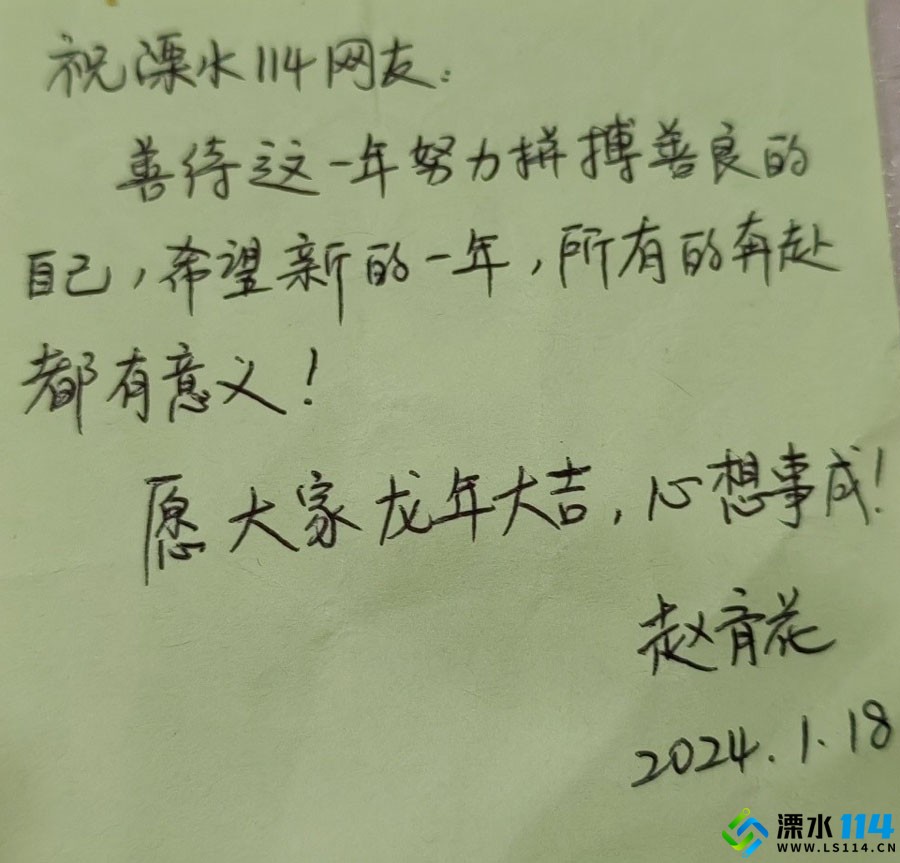 祝溧水114网友:
善待这一年努力拼搏善良的
自己,希望新的一年,所有的奔赴
都有意义!
愿大家龙年大吉,心想事成!
赵育花
2024.1.18
溧水114
WWW.LS114.CN